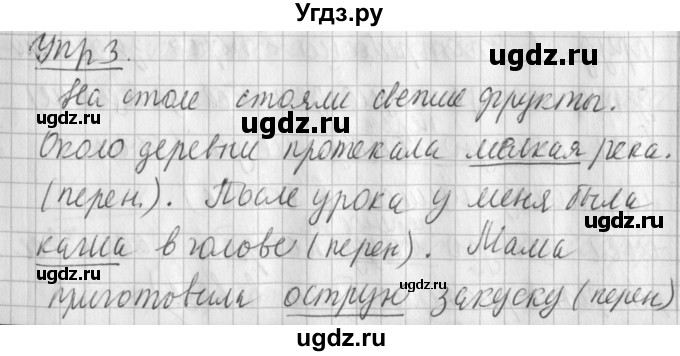 Угдз.ру
Упр 3.
угдз.ру
ugdz.ru
На столе стояли свежие фрукты.
ugdz.ru
ugdz.ru
Около деревни протекала мелкая река.
ugdz.ru
(перен.). После урока у меня была
каша в голове (перен). Мама
ugdz.ru
ugdz.ru
приготовила острую закуску (перен)
ugdz.ru
ugdz.ru